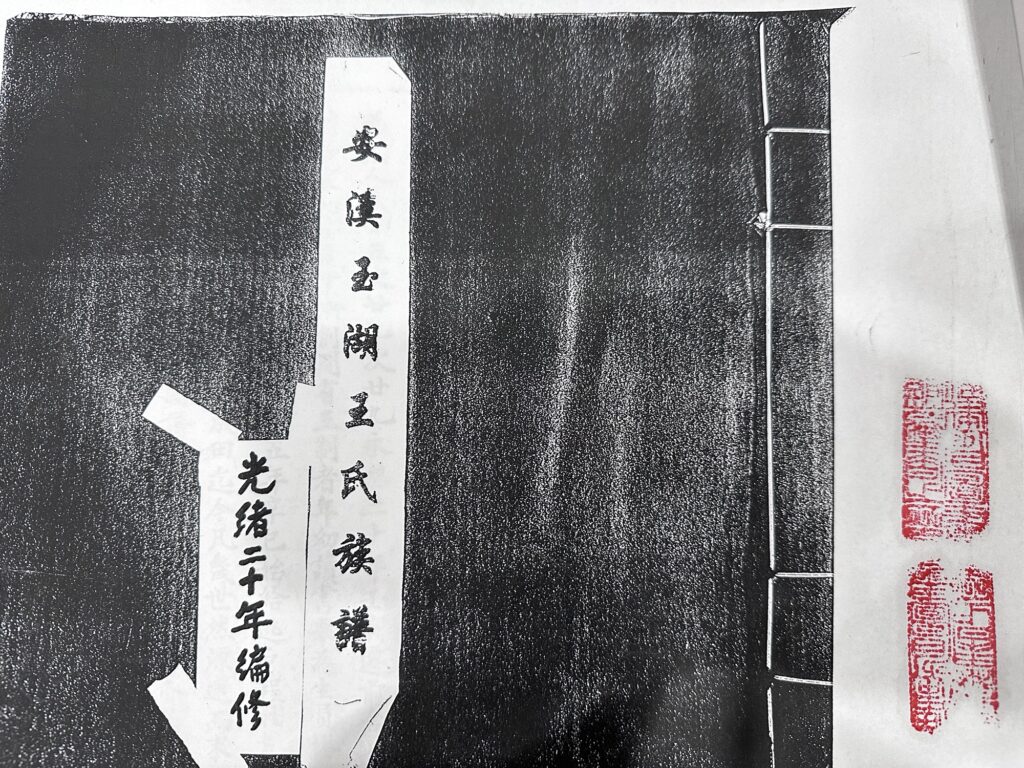 安溪玉湖王氏族譜
光緒二十年編修